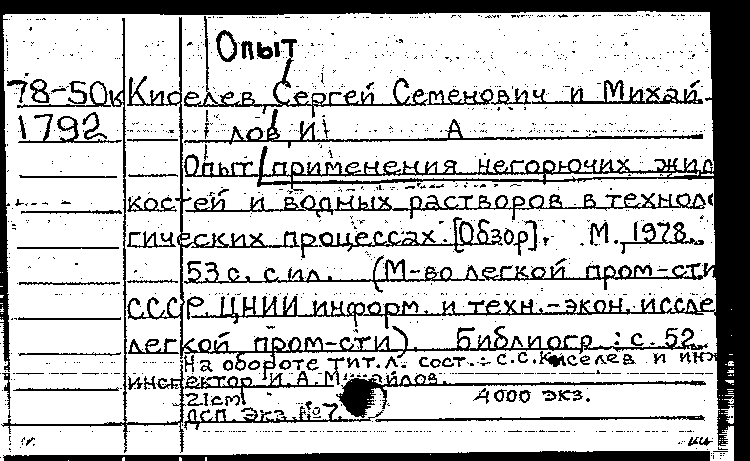 Опыт
78-50к Киселев, Сергей Семенович и Михай-
1792 лов, И А
Опыт применения негорючих жид
костей и водных растворов в техноло
гических процессах. [Обзор]. М., 1978.
53 с. с ил. (М-во легкой пром-сти
СССР. ЦНИИ информ. и техн.-экон. иссле
легкой пром-сти). Библиогр.: с. 52
На обороте тит. л. сост.: С.С. Киселев и инж
инспектор И.А. Михайлов.
21см 4000 экз.
ДСП. Экз. № 7